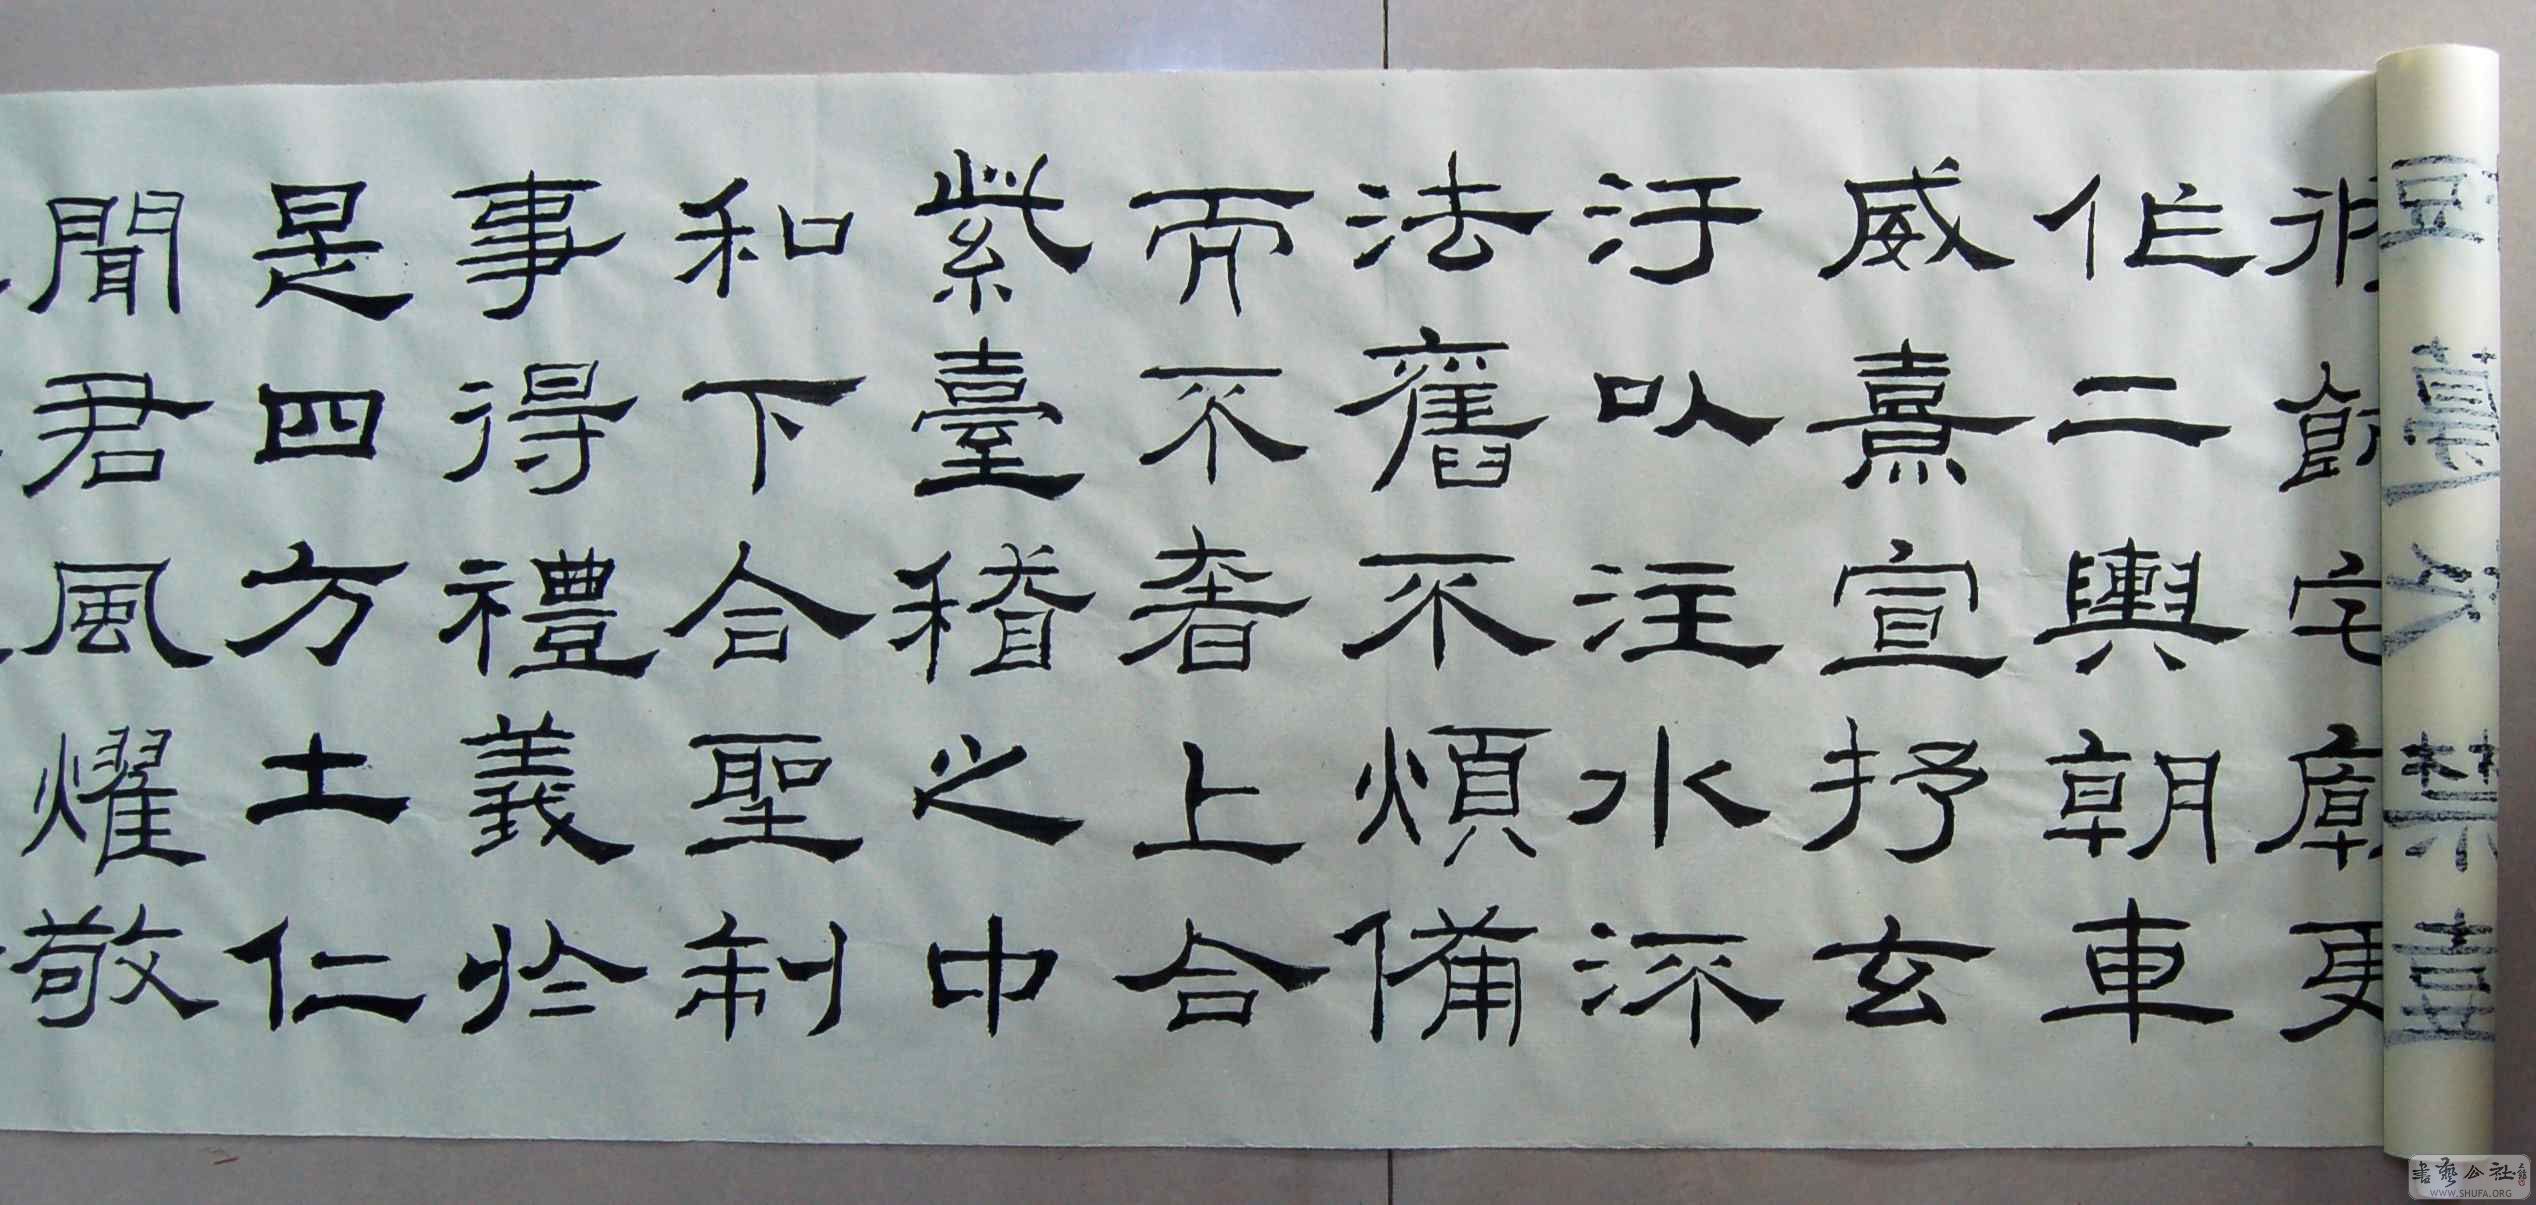 飾宅廟更
作二輿朝車
威熹宣抒玄
汙以注水流
法舊不煩備
而不奢上合
紫臺稽之中
和下合聖制
事得禮義於
是四方土仁
聞君風耀敬
書藝公社
WWW.SHUFA.ORG